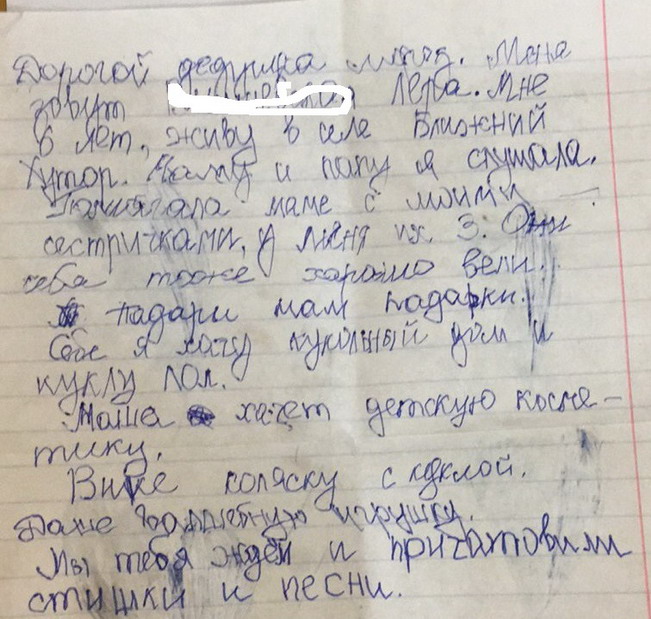 Дорогой дедушка мароз. Меня
зовут Лера. Мне
6 лет, живу в селе Ближний
Хутор. Маму и папу я слушала.
Памагала маме с моими
сестричками, у меня их 3. Они
себя тоже харошо вели.
падари нам падарки.
Себе я хачу кукольный дом и
куклу лол.
Маша хачет детскую косме-
тику.
Вике коляску с куклой.
Даше игрушку.
Мы тебя ждём и пригатовили
стишки и песни.